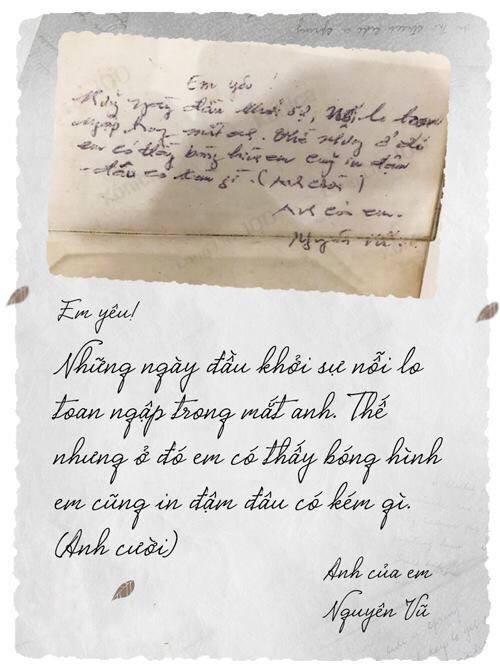 Em yêu!
ngập trong mắt anh. Thế nhưng ở đó
em có thấy bóng hình em cũng in đậm
đâu có kém gì. (Anh cười)
Anh của em.
Nguyên Vũ.
Em yêu!
Những ngày đầu khởi sự nỗi lo
toan ngập trong mắt anh. Thế
nhưng ở đó em có thấy bóng hình
em cũng in đậm đâu có kém gì.
(Anh cười)
Anh của em
Nguyên Vũ